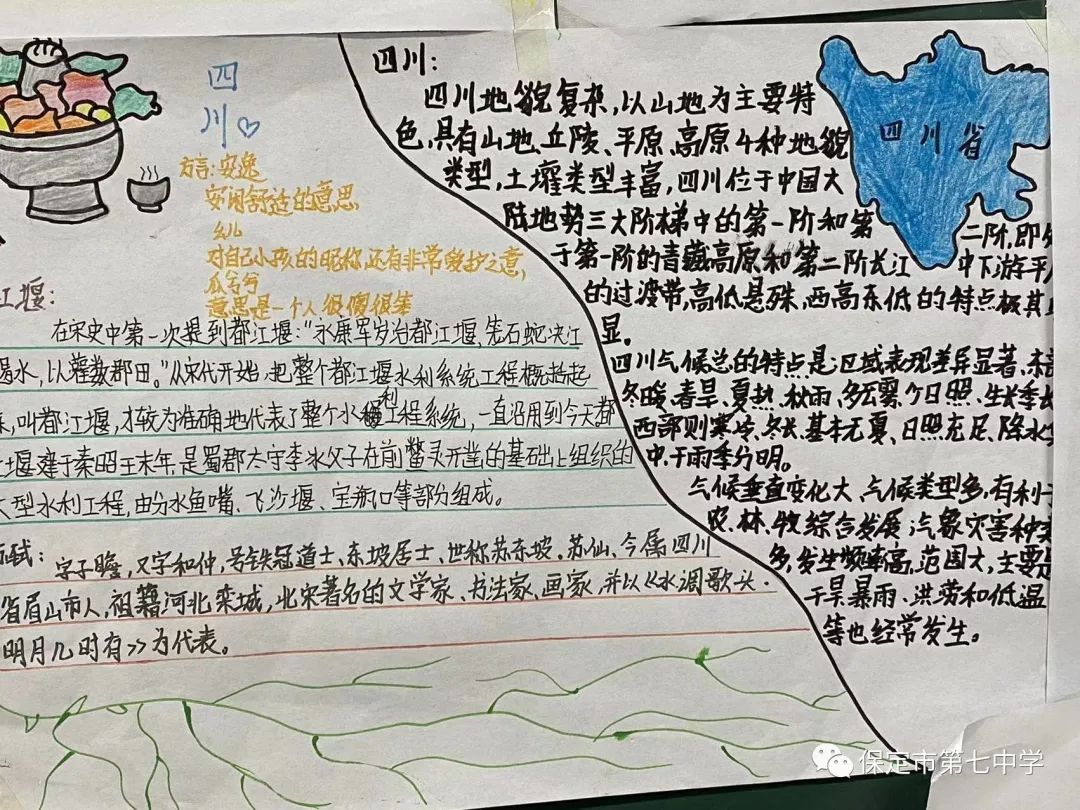 四
川
方言:安逸
安闲舒适的意思
幺儿
对自己小孩的昵称还有非常爱护之意,
瓜兮兮
意思是一个人很傻很笨
江堰:
在宋史中第一次提到都江堰:"永康军岁治都江堰,笼石蛇决江
遏水,以灌数郡田。"从宋代开始,把整个都江堰水利系统工程概括起
叫都江堰,才较为准确地代表了整个水利工程系统,一直沿用到今天都
堰建于秦昭王末年,是蜀郡太守李冰父子在前鳖灵开凿的基础上组织的
型水利工程,由分水鱼嘴、飞沙堰、宝瓶口等部分组成。
轼:字子瞻,又字和仲,号铁冠道士、东坡居士、世称苏东坡、苏仙、今属四川
省眉山市人,祖籍河北栾城,北宋著名的文学家、书法家、画家,并以《水调歌头·
明月几时有》为代表。
四川:
四川地貌复杂,以山地为主要特
色,具有山地、丘陵、平原、高原4种地貌
类型,土壤类型丰富,四川位于中国大
陆地势三大阶梯中的第一阶和第
二阶,即
于第一阶的青藏高原和第二阶长江
中下游平
的过渡带,高低悬殊,西高东低的特点极其
显。
四川气候总的特点是:区域表现差异显著,
冬暖、春旱、夏热、秋雨、多云雾、少日照、生长季
西部则寒冷、冬长、基本无夏、日照充足、降水
中、干雨季分明。
气候垂直变化大,气候类型多,有利于
农、林、牧综合发展;气象灾害种
多,发生频率高,范围大,主要是
干旱暴雨、洪涝和低温
等也经常发生。
四川省
保定市第七中学